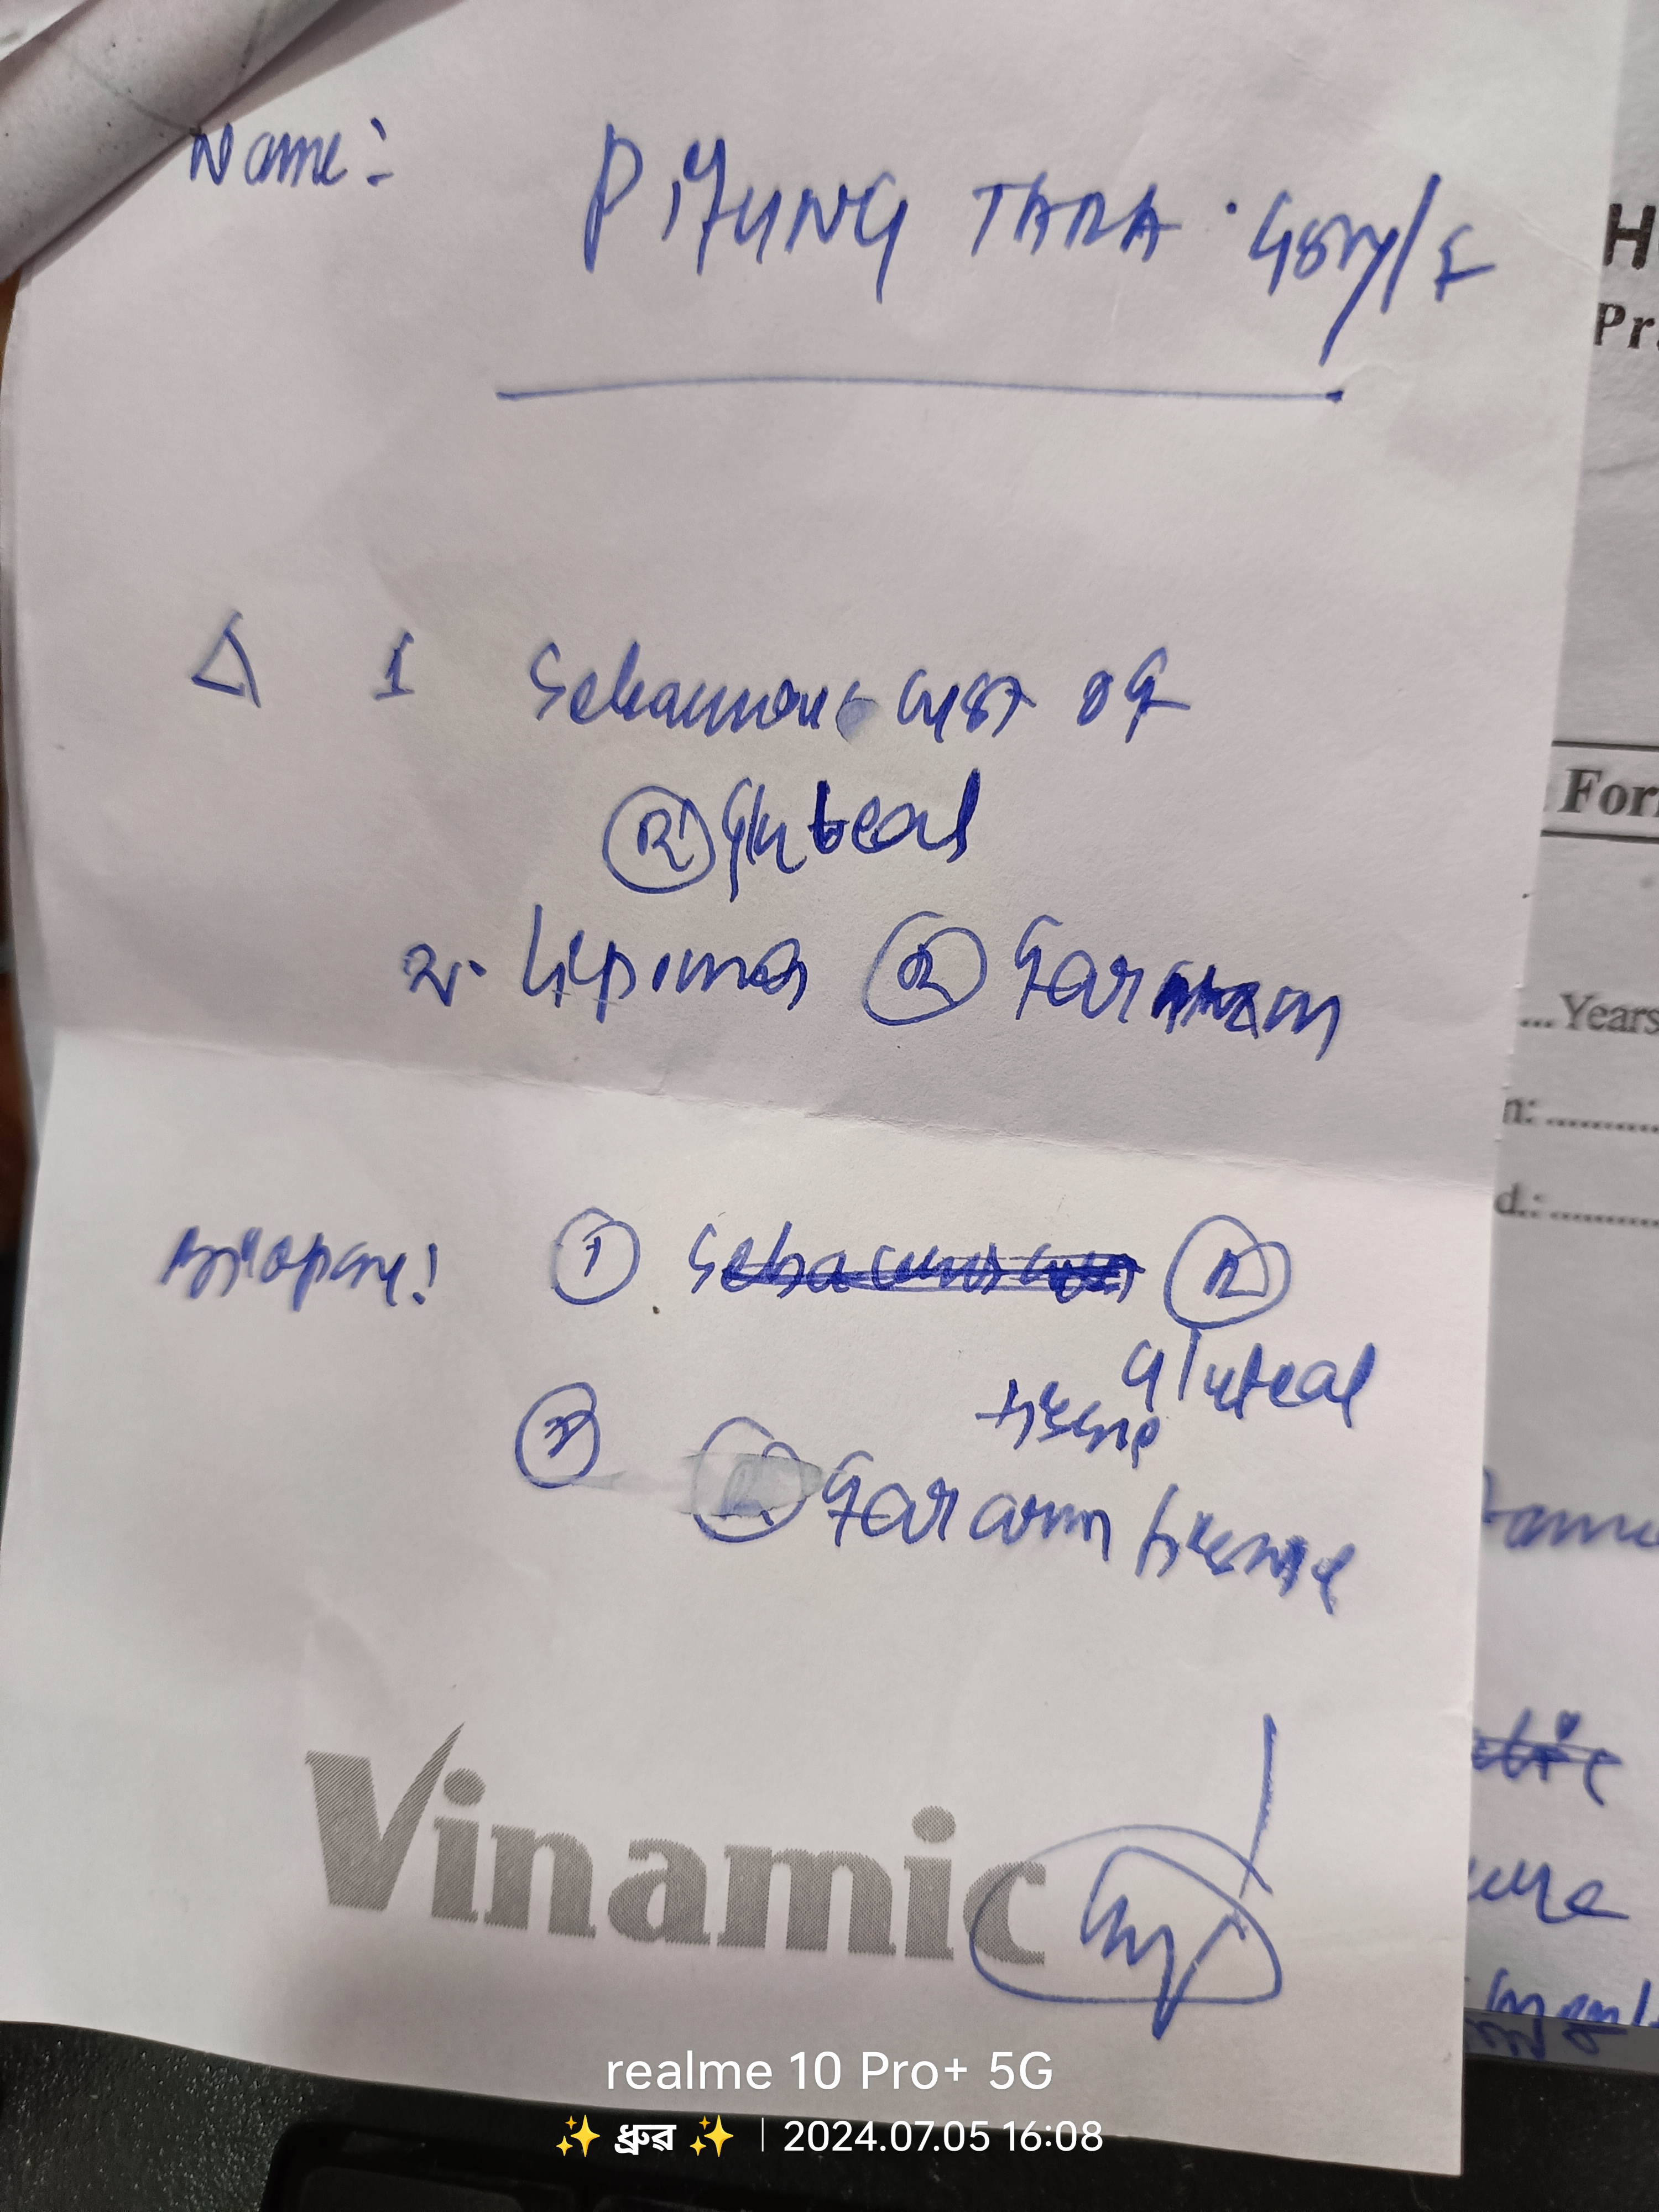 Name:
PIYUNG TARA . 48y/F
H
Pr
Δ 1 Sebaceous cyst of
Ⓡ Gluteal
For
2. Lipoma Ⓡ Forearm
...Years
n: ..........
d.: ..........
Biopsy: ① Ⓡ
Gluteal
tissue
② Ⓡ Forearm tissue
Vinamic
realme 10 Pro+ 5G
✨ ধ্রুৱ ✨ | 2024.07.05 16:08